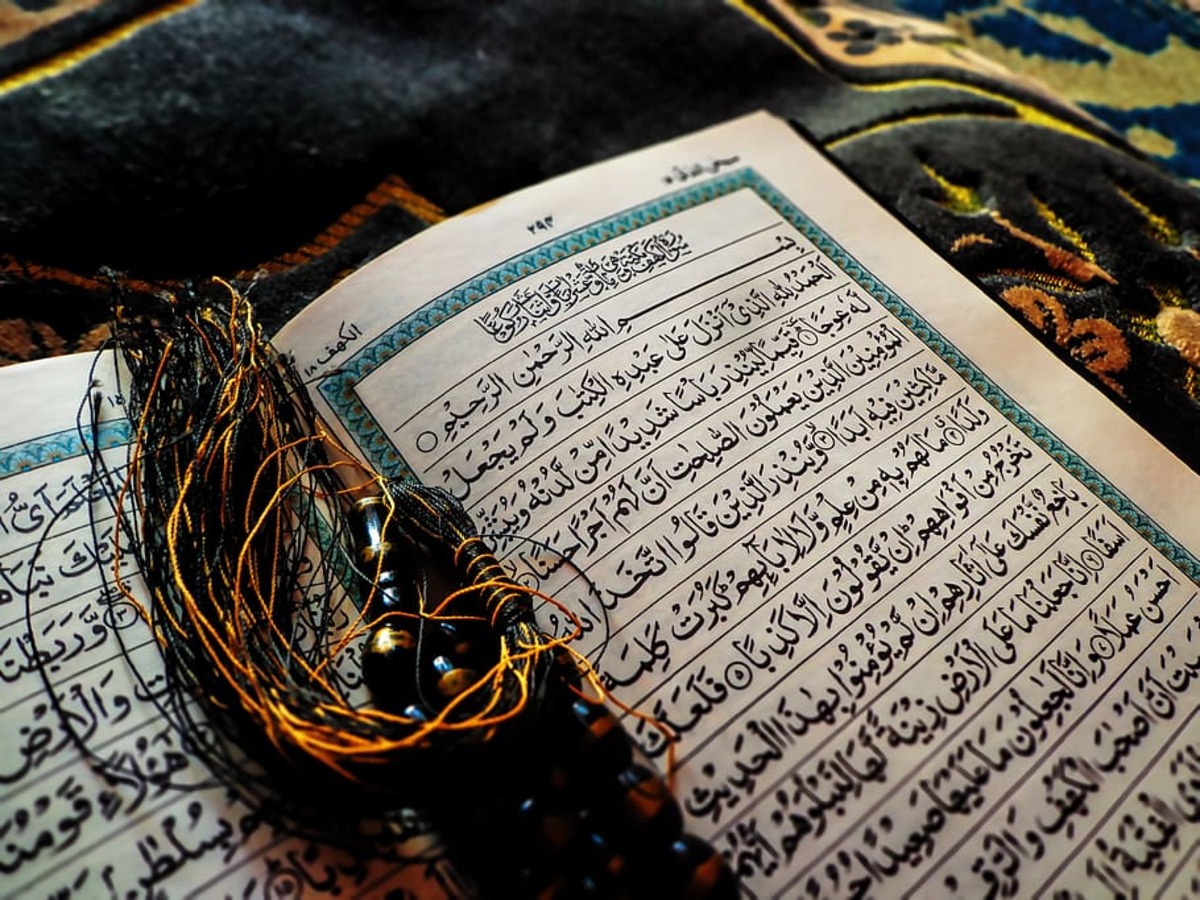 ٢٩٣
الكهف ١٨
سُوْرَةُ الْكَهْفِ مَكِّيَّةٌ
بِسْمِ اللّٰهِ الرَّحْمٰنِ الرَّحِيْمِ
اَلْحَمْدُ لِلّٰهِ الَّذِيْۤ اَنْزَلَ عَلٰى عَبْدِهِ الْكِتٰبَ وَلَمْ يَجْعَلْ
لَّهٗ عِوَجًا ١ قَيِّمًا لِّيُنْذِرَ بَاْسًا شَدِيْدًا مِّنْ لَّدُنْهُ وَيُبَشِّرَ
الْمُؤْمِنِيْنَ الَّذِيْنَ يَعْمَلُوْنَ الصّٰلِحٰتِ اَنَّ لَهُمْ اَجْرًا حَسَنًا
مَّاكِثِيْنَ فِيْهِ اَبَدًا ٣ وَّيُنْذِرَ الَّذِيْنَ قَالُوا اتَّخَذَ
وَلَدًا ٤ مَا لَهُمْ بِهٖ مِنْ عِلْمٍ وَّلَا لِاٰبَآئِهِمْ كَبُرَتْ كَلِمَةً
تَخْرُجُ مِنْ اَفْوَاهِهِمْ اِنْ يَّقُوْلُوْنَ اِلَّا كَذِبًا ٥ فَلَعَلَّكَ
بَاخِعٌ نَّفْسَكَ عَلٰۤى اٰثَارِهِمْ اِنْ لَّمْ يُؤْمِنُوْا بِهٰذَا الْحَدِيْثِ
اَسَفًا ٦ اِنَّا جَعَلْنَا مَا عَلَى الْاَرْضِ زِيْنَةً لَّهَا لِنَبْلُوَهُمْ اَيُّهُمْ
اَحْسَنُ عَمَلًا ٧ وَاِنَّا لَجٰعِلُوْنَ مَا عَلَيْهَا صَعِيْدًا جُرُزًا
اَنَّ اَصْحٰبَ الْكَهْفِ وَالرَّقِيْمِ
الْفِتْيَةُ
وَّرَبَطْنَا
وَالْاَرْضِ
هٰۤؤُلَآءِ قَوْمُنَا
بِسُلْطٰنٍ